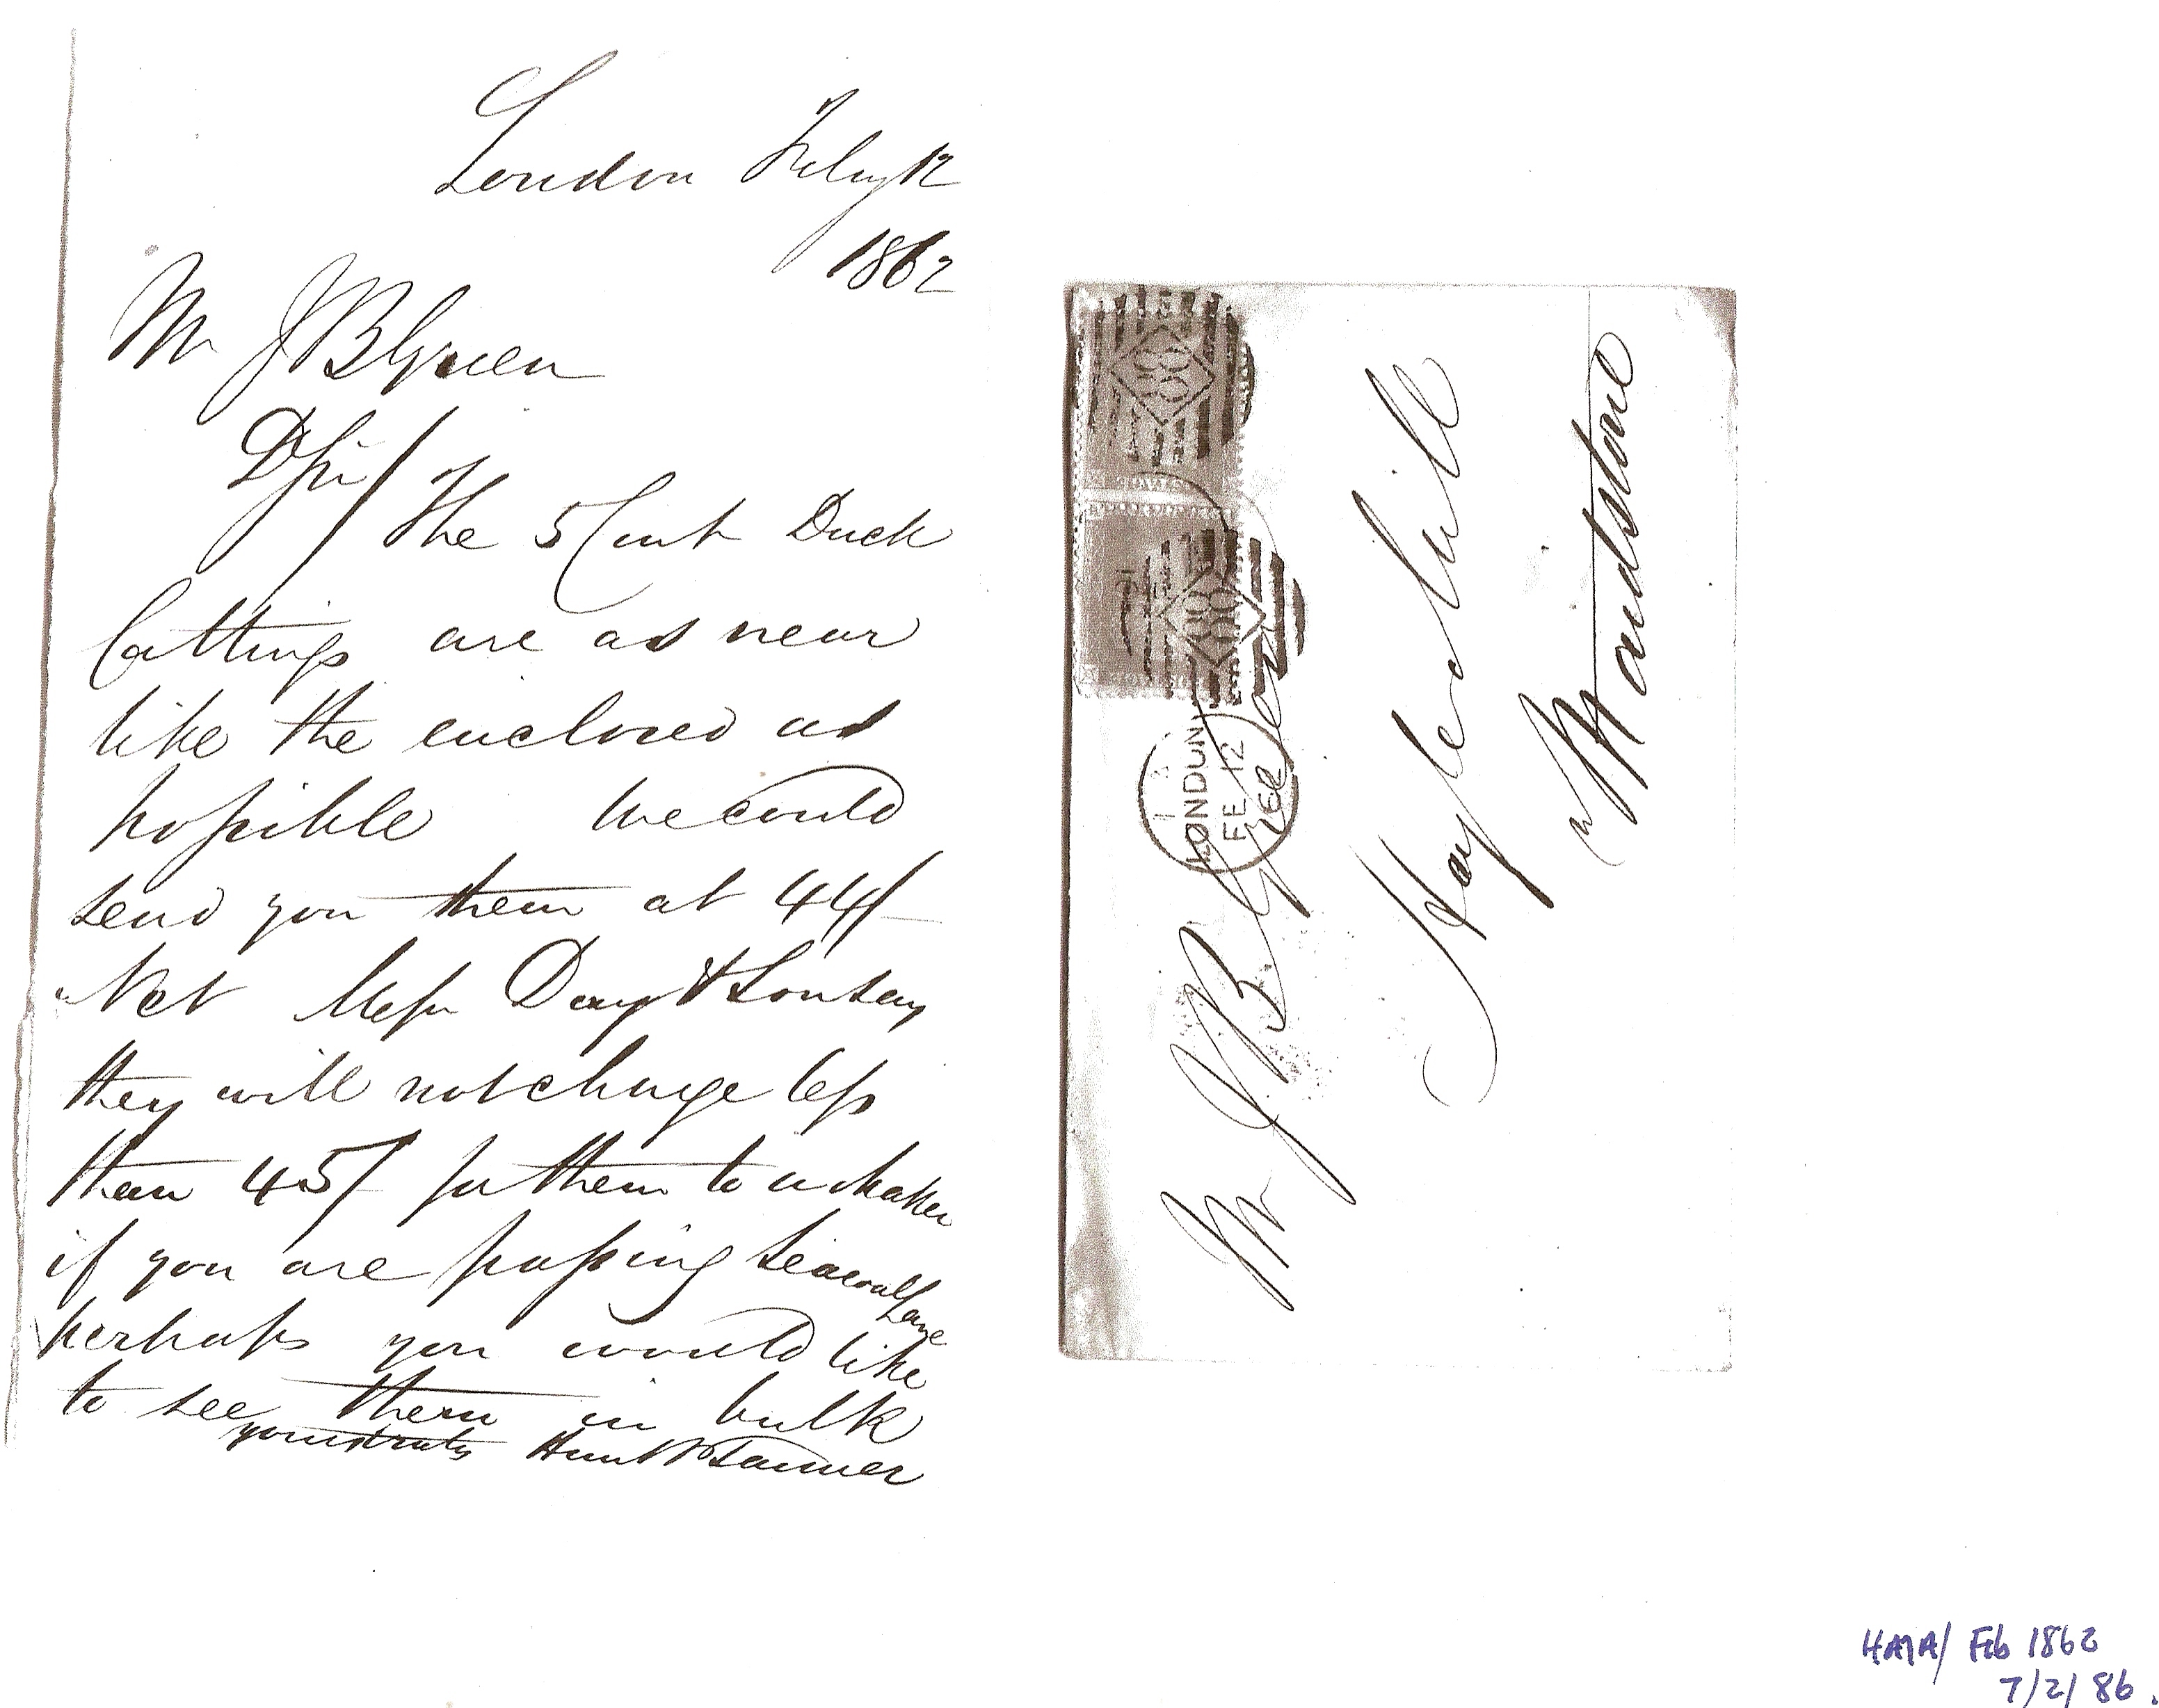 London Feby 12
1862
Mr J B Green
D Sir/ The 5 Cwt Duck
Cuttings are as near
like the enclosed as
possible We could
send you them at 44/-
Net Messrs Day & Son say
they will not charge less
than 45/- for them to a maker
if you are passing Seacoal Lane
perhaps you would like
to see them in bulk
yours truly Hunt & Tanner
Mr J B Green
Hayle Mill
Nr Maidstone
LONDON
FE 12
62
88
88
HAYA/ Feb 1862
7/2/86.